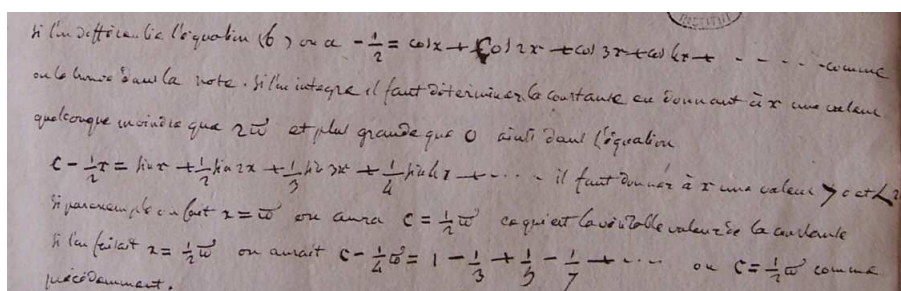 INSTITUT
Si l'on différentie l'équation (6) on a - 1/2 = cos x + cos 2x + cos 3x + cos 4x + ..... comme
on le trouve dans la note. Si l'on integre il faut déterminer la constante en donnant à x une valeur
quelconque moindre que 2ϖ et plus grande que 0 ainsi dans l'équation
c - 1/2 x = sin x + 1/2 sin 2x + 1/3 sin 3x + 1/4 sin 4x + .... il faut donner à x une valeur > 0 et < 2
Si par exemple on fait x = ϖ on aura c = 1/2 ϖ ce qui est la véritable valeur de la constante
Si l'on faisait x = 1/2 ϖ on aurait c - 1/4 ϖ = 1 - 1/3 + 1/5 - 1/7 + .... ou c = 1/2 ϖ comme
précédemment.